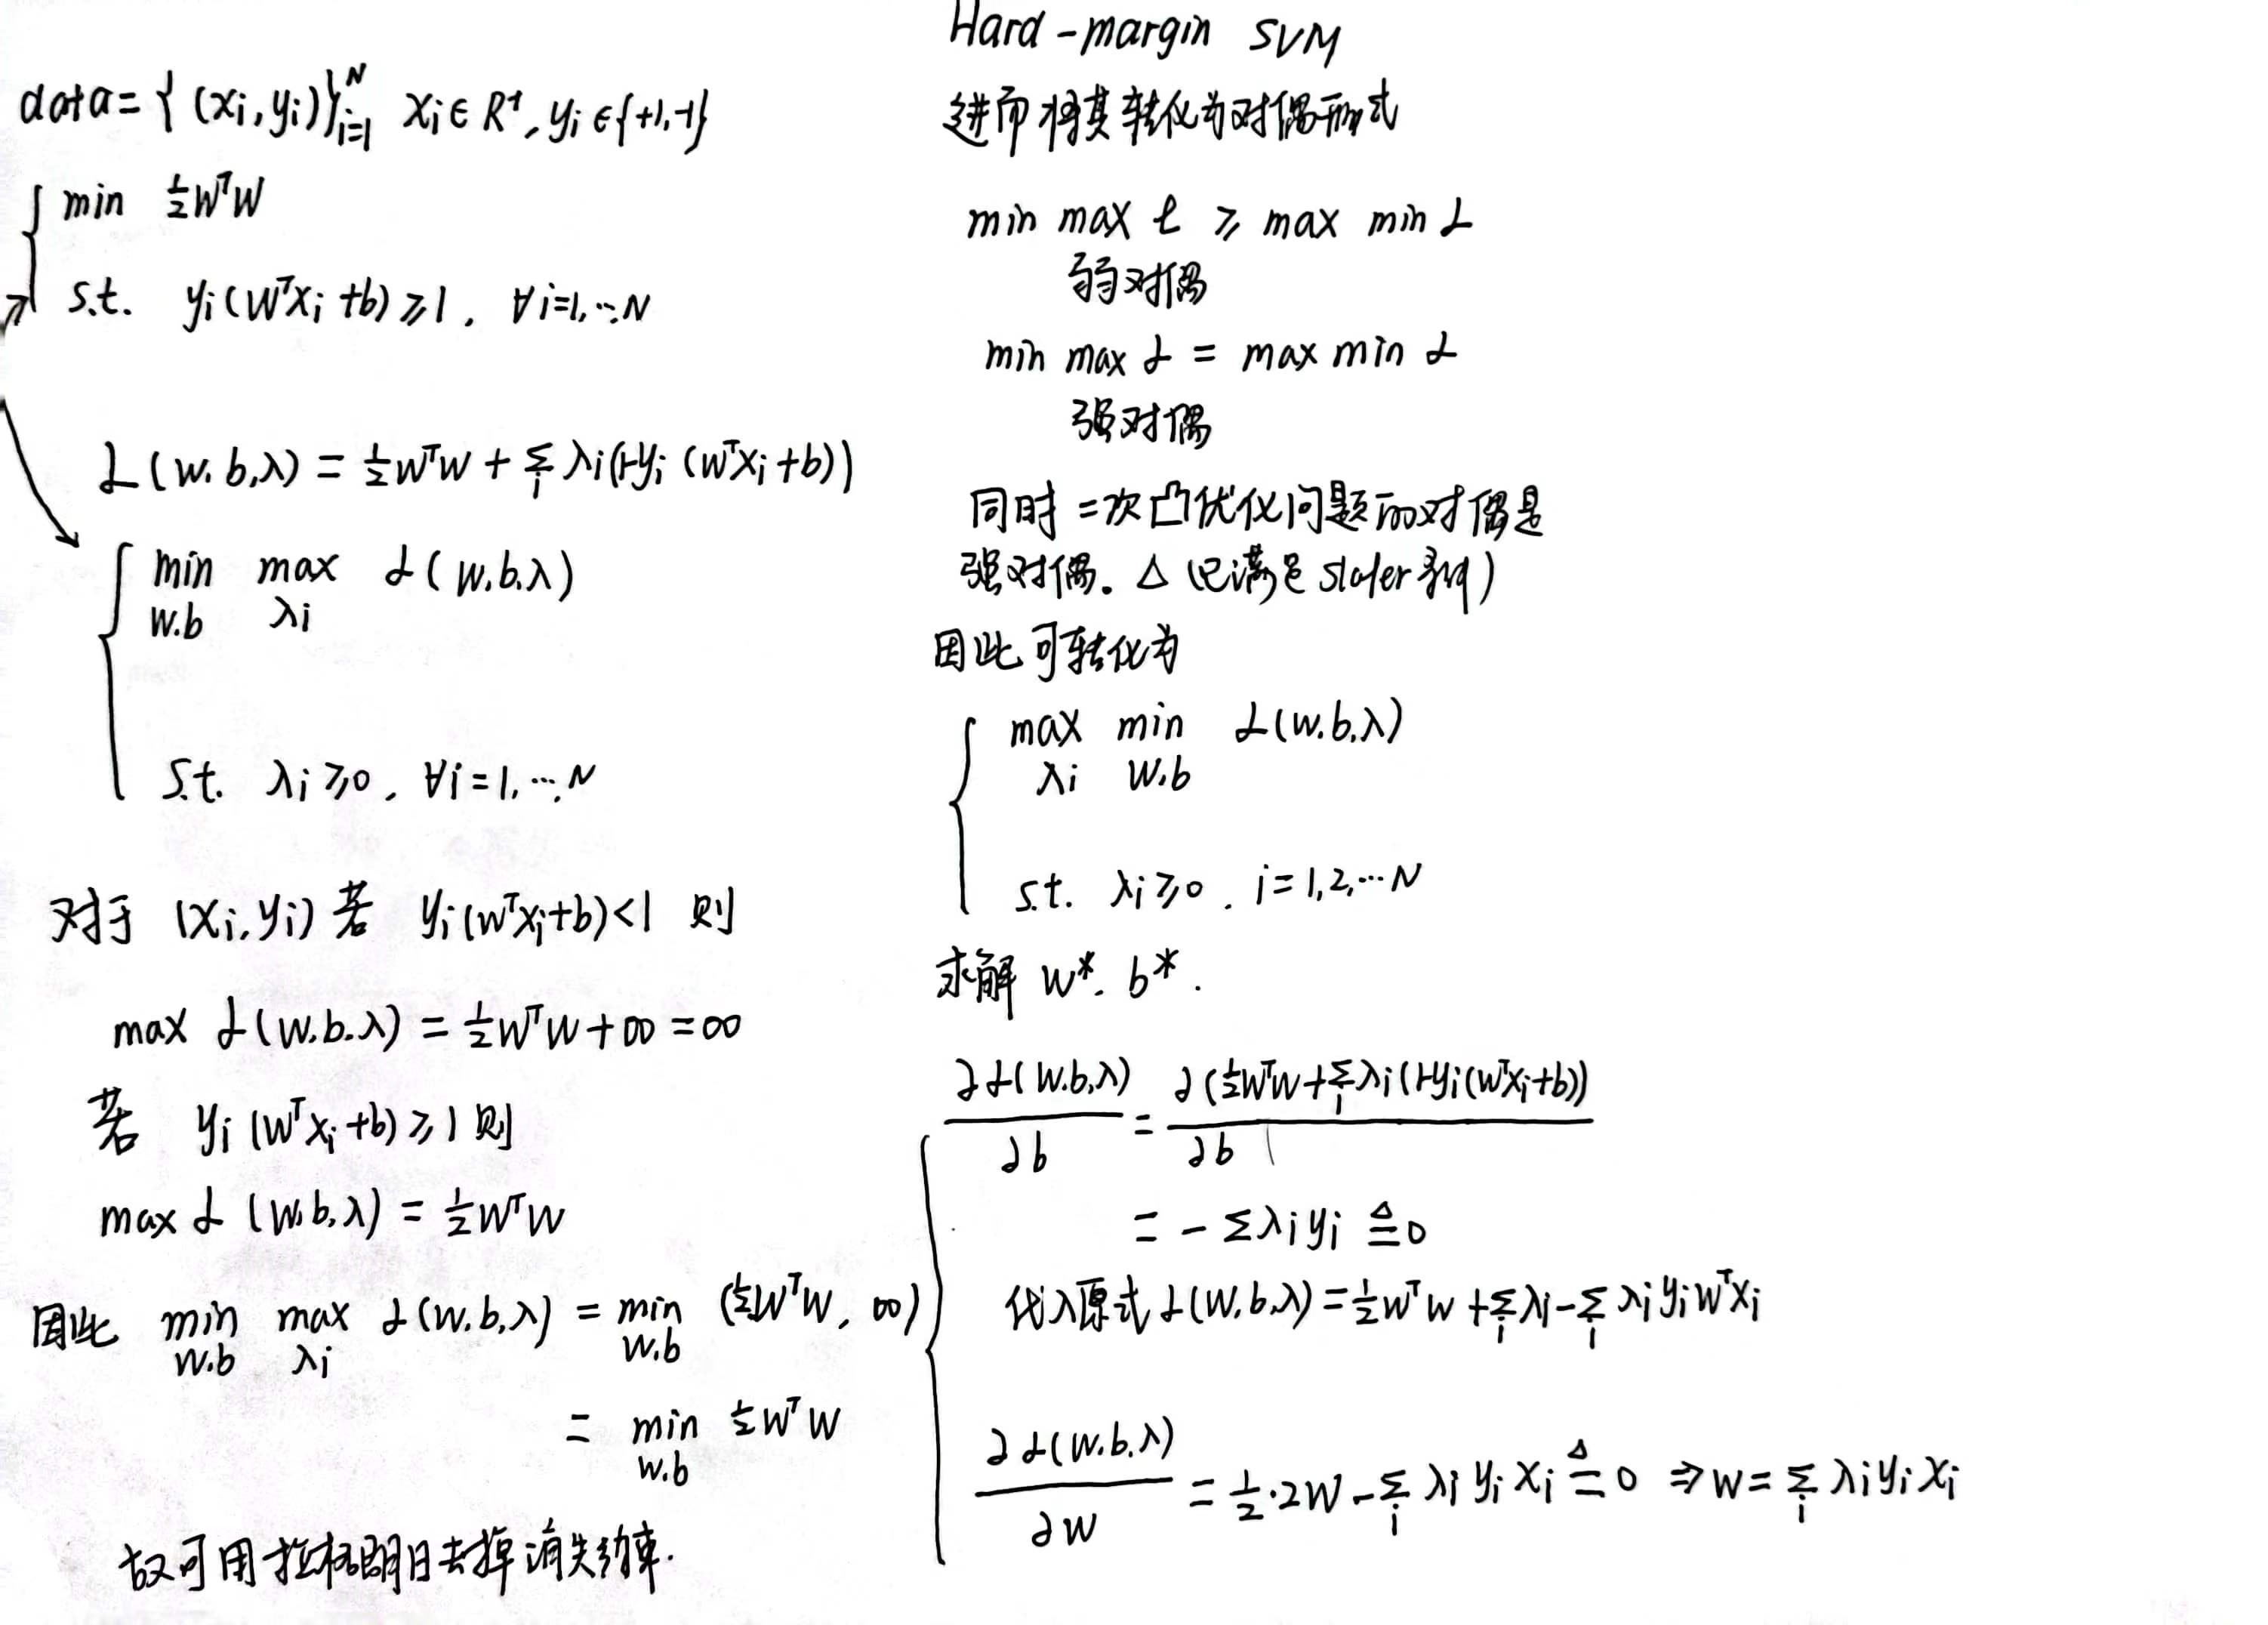 data = { (xᵢ, yᵢ)}ᵢ₌₁ᴺ xᵢ ∈ R¹, yᵢ ∈ {+1, -1}
min ½WᵀW
s.t. yᵢ(Wᵀxᵢ + b) ≥ 1, ∀i=1,…N
L(w, b, λ) = ½WᵀW + Σᵢ λᵢ(1-yᵢ(wᵀxᵢ + b))
min max L(w, b, λ)
w.b λᵢ
s.t. λᵢ ≥ 0, ∀i = 1, …, N
对于 (xᵢ, yᵢ) 若 yᵢ(wᵀxᵢ+b)<1 则
max L(w, b, λ) = ½WᵀW + ∞ = ∞
若 yᵢ(wᵀxᵢ+b) ≥ 1 则
max L(w, b, λ) = ½WᵀW
因此 min max L(w, b, λ) = min (½WᵀW, ∞)
w.b λᵢ w.b
= min ½WᵀW
w.b
故可用拉格朗日去掉消失约束.
Hard-margin SVM
进而将其转化为对偶形式
min max L ≥ max min L
弱对偶
min max L = max min L
强对偶
同时二次凸优化问题的对偶是
强对偶. Δ (已满足slater条件)
因此可转化为
max min L(w, b, λ)
λᵢ w.b
s.t. λᵢ ≥ 0, i = 1, 2, …N
求解 w*, b*.
∂L(w, b, λ) / ∂b = ∂(½WᵀW + Σᵢ λᵢ(1-yᵢ(wᵀxᵢ+b)) / ∂b
= - Σλᵢyᵢ ≜ 0
代入原式 L(w, b, λ) = ½WᵀW + Σᵢ λᵢ - Σᵢ λᵢyᵢwᵀxᵢ
∂L(w, b, λ) / ∂w = ½·2W - Σᵢ λᵢyᵢxᵢ ≜ 0 ⇒ w = Σᵢ λᵢyᵢxᵢ